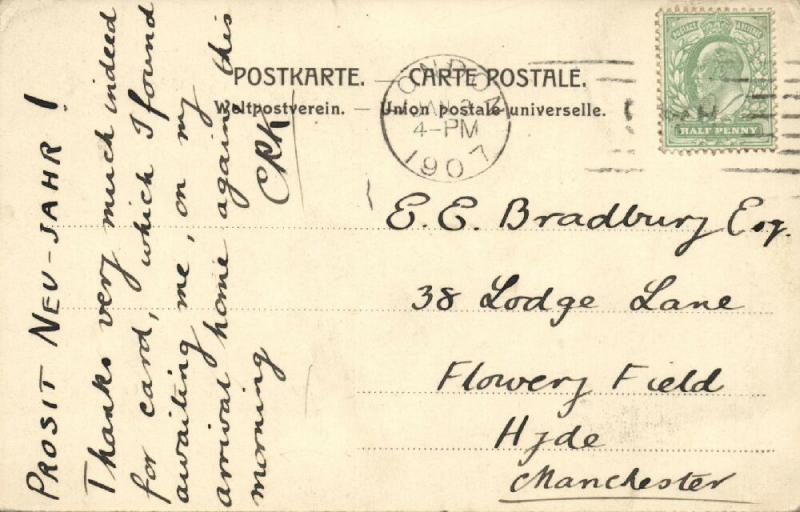 POSTKARTE. — CARTE POSTALE.
Weltpostverein. — Union postale universelle.
LONDON
4-PM
1907
POSTAGE REVENUE
HALF PENNY
PROSIT NEU-JAHR!
Thanks very much indeed
for card, which I found
awaiting me, on my
arrival home again this
morning
E. E. Bradbury Esq.
38 Lodge Lane
Flowery Field
Hyde
Manchester